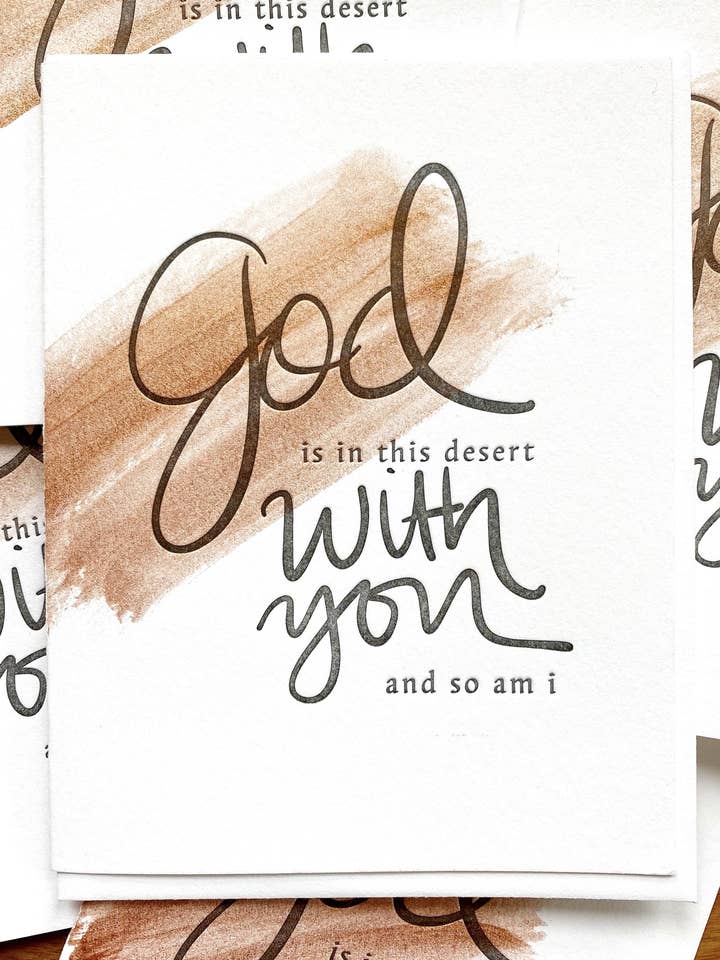 is in this desert
God
is in this desert
with
you
and so am i